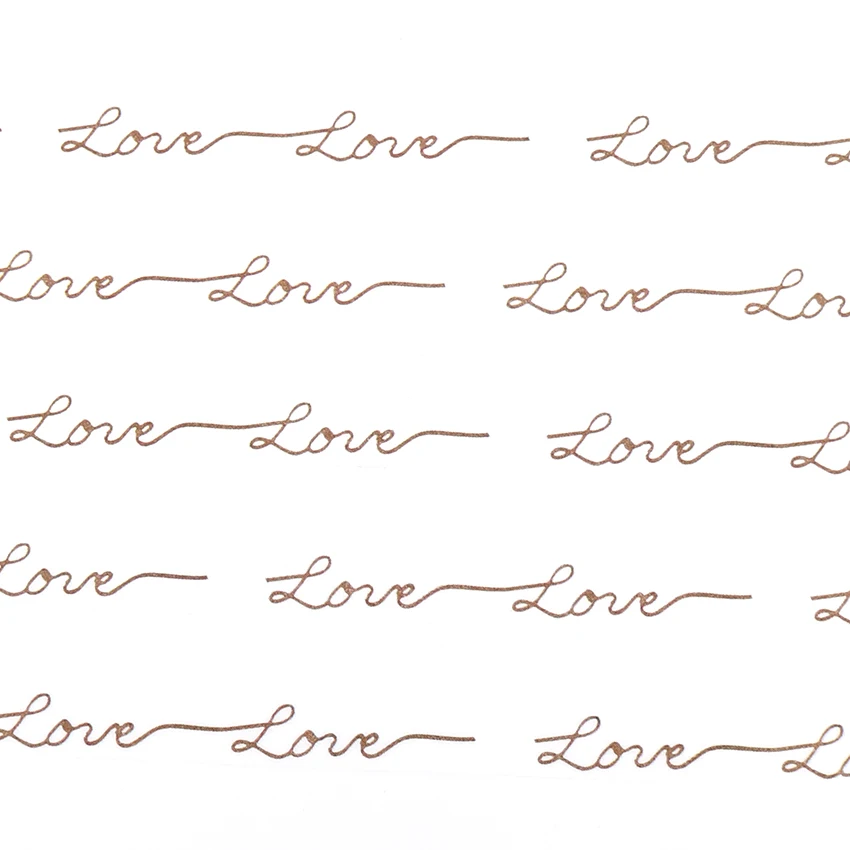 Love Love Love
Love Love Love Lov
Love Love Love Lo
Love Love Love
Love Love Love Lo